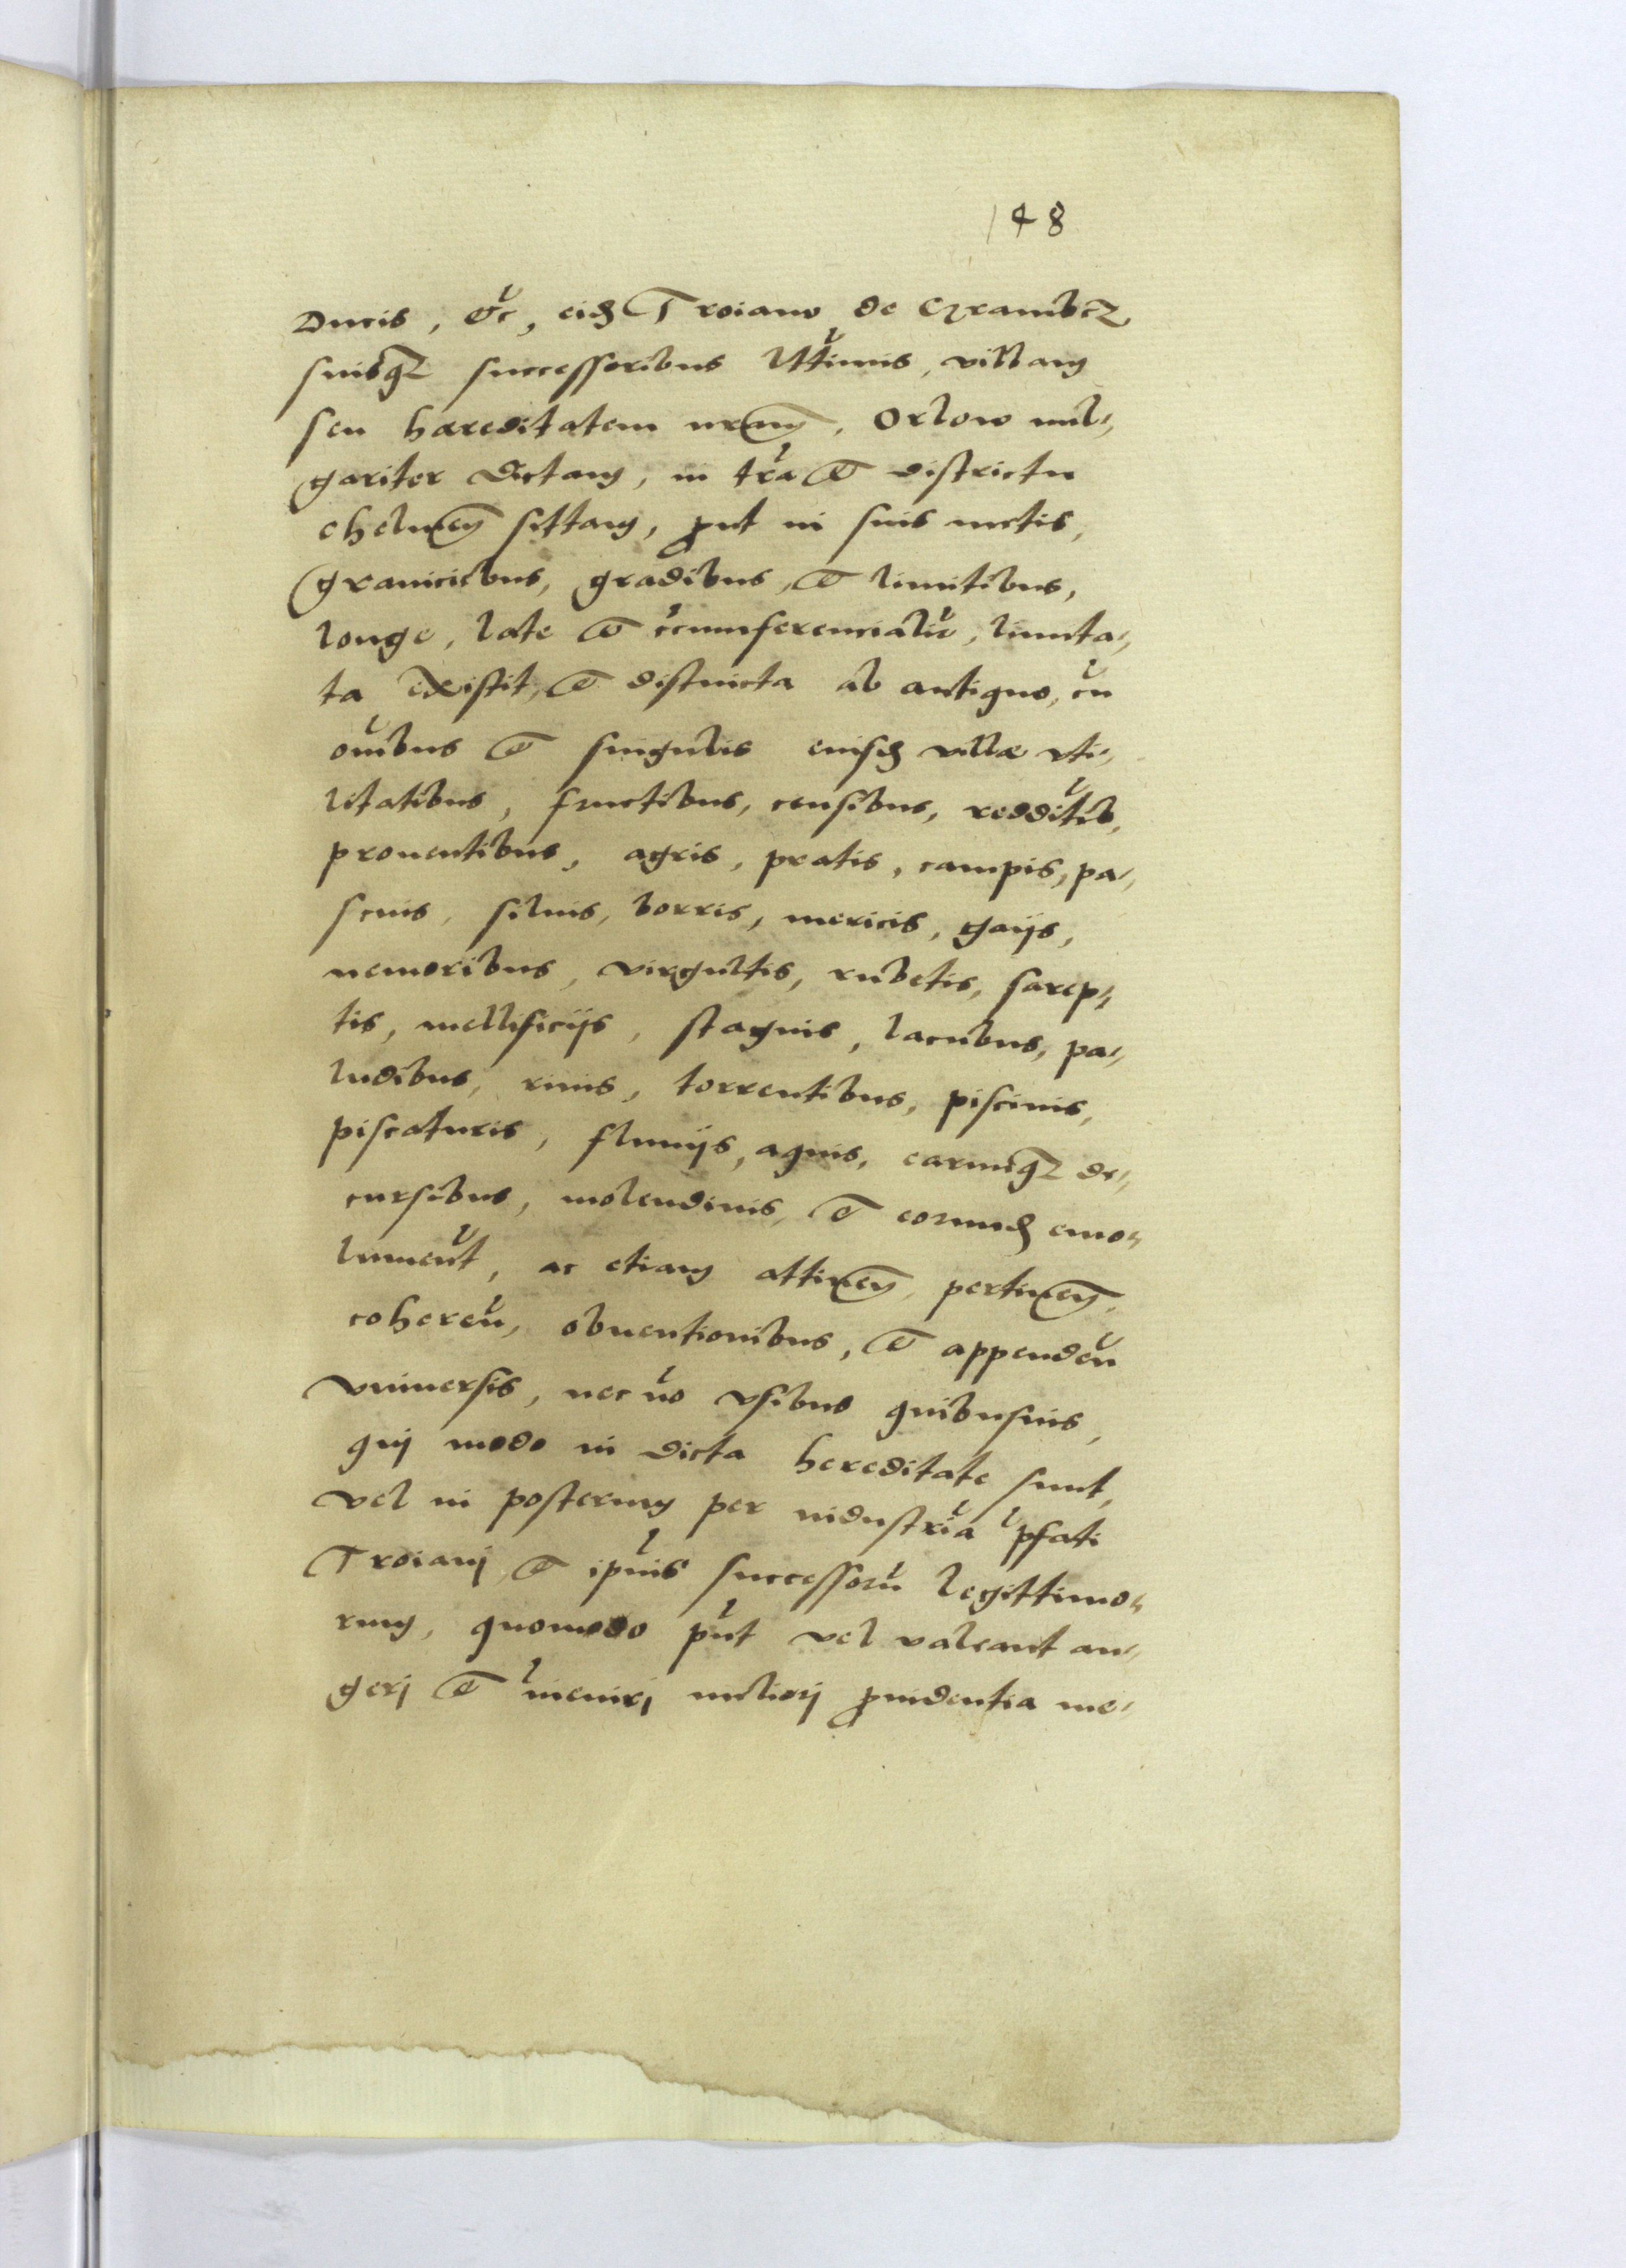 148
Ducis, &c, eidẽ Troiano de Czrambcz
suisq; successoribus lttimis, villam
seu hæreditatem nrãm, Orlow vul-
gariter dictam, in trã et districtu
chelmeñ sittam, prout in suis metis,
graniciebus, gradibus, et limitibus,
longe, late et circumferencialit, limita-
ta existit, et distincta ab antiquo, cũ
omibus et singulis eiusdẽ villæ vti-
litatibus, fructibus, censibus, redditib,
prouentibus, agris, pratis, campis, pa-
scuis, siluis, borris, mericis, gaijs,
nemoribus, virgultis, rubetis, sarep-
tis, mellificijs, stagnis, lacubus, pa-
ludibus, riuis, torrentibus, piscinis,
piscaturis, fluuijs, aquis, earumq; de-
cursibus, molendinis, et eorumdẽ emo-
lument, ac etiam attineñ, pertineñ,
cohereñ, obuentionibus, et appendeñ
vniuersis, nec nõ vsibus quibusuis,
quj modo in dicta hereditate sunt,
vel in posterum per industriã pfati
Troianj, et ipius successorũ legittimo-
rum, quomodo pñt vel valeant au-
gerj et inenirj meliorj prouidentia me-